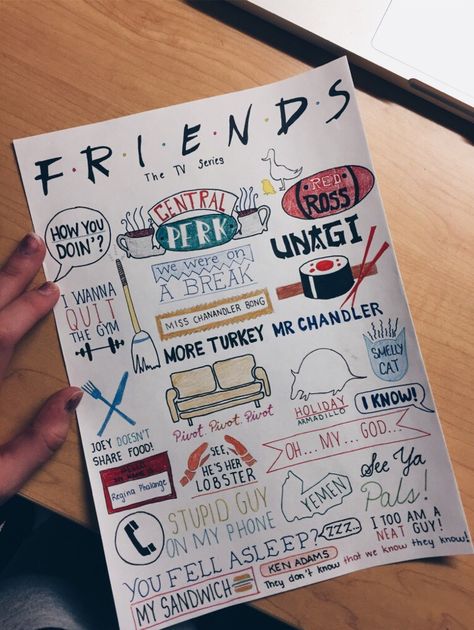 FRIENDS
The TV Series
HOW YOU
DOIN'?
CENTRAL
PERK
RED
ROSS
I WANNA
QUIT
THE GYM
WE WERE ON
A BREAK
UNAGI
MISS CHANANDLER BONG
MORE TURKEY MR CHANDLER
SMELLY
CAT
Pivot. Pivot. Pivot
HOLIDAY
ARMADILLO
I KNOW!
JOEY DOESN'T
SHARE FOOD!
OH... MY... GOD...
HELLO
MY NAME IS
Regina Phalange
SEE,
HE'S HER
LOBSTER
STUPID GUY
ON MY PHONE
YEMEN
See Ya
Pals!
YOU FELL ASLEEP?
ZZZ...
I TOO AM A
NEAT GUY!
MY SANDWICH
KEN ADAMS
They don't know that we know they know!